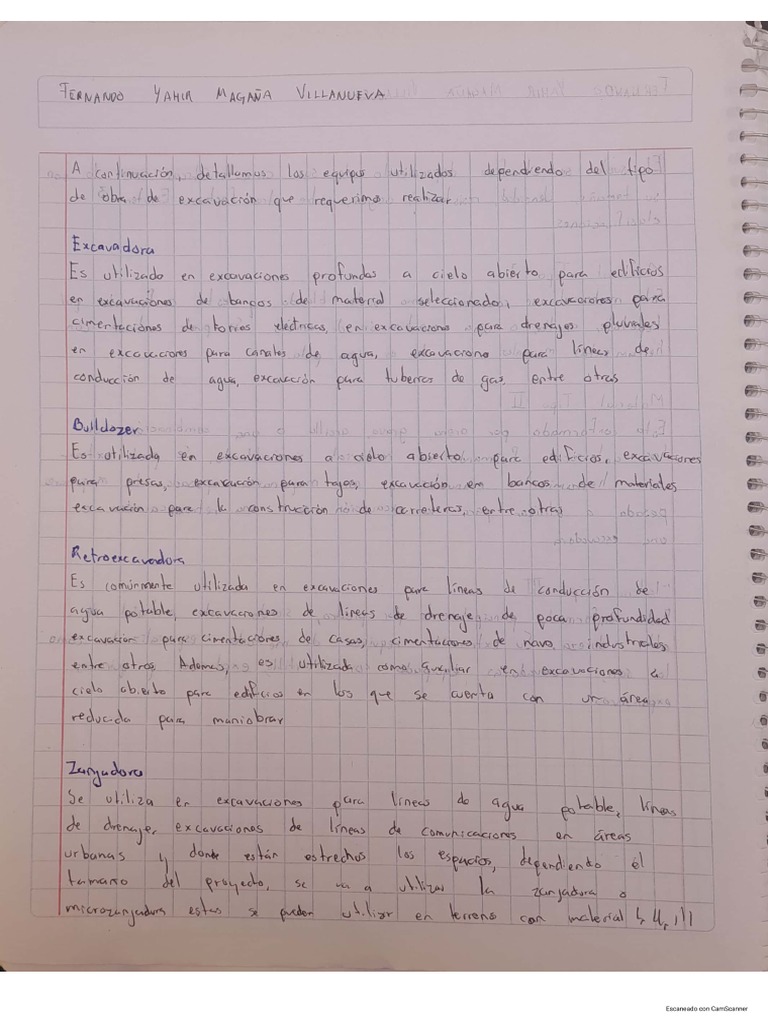 FERNANDO YAHIR MAGAÑA VILLANUEVA
A continuación, detallamos los equipos utilizados dependiendo del tipo
de obra de excavación que requerimos realizar
Excavadora
Es utilizado en excavaciones profundas a cielo abierto para edificios
en excavaciones de bancos de material seleccionado, excavaciones para
cimentaciones de torres electricas, en excavaciones para drenajes pluviales
en excavaciones para canales de agua, excavaciono para líneas de
conducción de agua, excavación para tuberias de gas, entre otras
Bulldozer
Es utilizada en excavaciones a cielo abierto para edificios, excavaciones
para presas, excavación para tajos, excavación em bancos de materiales
excavación para la construcción de carreteras, entre otras
Retroexcavadora
Es comúnmente utilizada en excavaciones para líneas de conducción de
agua potable, excavaciones de líneas de drenaje de poca profundidad
excavación para cimentaciones de casas, cimentaciones de nave industriales
entre otros. Ademas, es utilizada como auxiliar en excavaciones a
cielo abierto para edificios en los que se cuenta con un área
reducida para maniobrar
Zanjadora
Se utiliza en excavaciones para líneas de agua potable, líneas
de drenaje, excavaciones de líneas de comunicaciones en áreas
urbanas y donde están estrechos los espacios, dependiendo él
tamaño del proyecto, se va a utilizar la zanjadora o
microzanjadora estas se pueden utilizar en terreno con material I, II, III
Escaneado con CamScanner